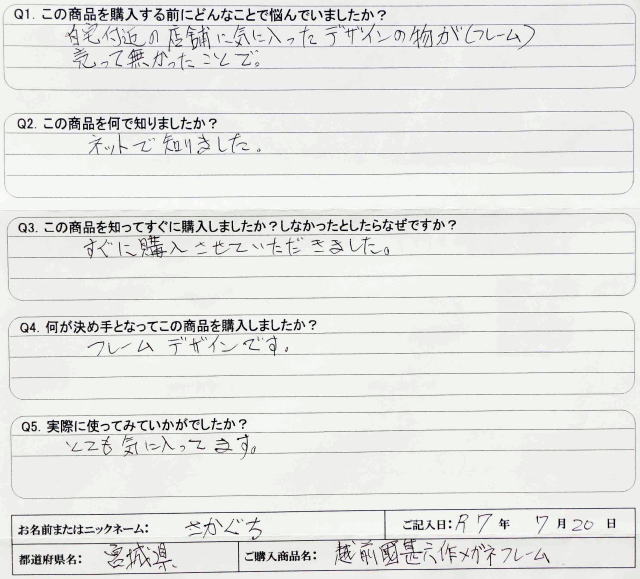 Q1. この商品を購入する前にどんなことで悩んでいましたか？
自宅付近の店舗に気に入ったデザインの物が(フレーム)
売って無かったことで。
Q2. この商品を何で知りましたか？
ネットで知りました。
Q3. この商品を知ってすぐに購入しましたか？しなかったとしたらなぜですか？
すぐに購入させていただきました。
Q4. 何が決め手となってこの商品を購入しましたか？
フレームデザインです。
Q5. 実際に使ってみていかがでしたか？
とても気に入ってます。
お名前またはニックネーム： さかぐち ご記入日：R7年 7月20日
都道府県名： 宮城県 ご購入商品名： 越前國甚六作メガネフレーム